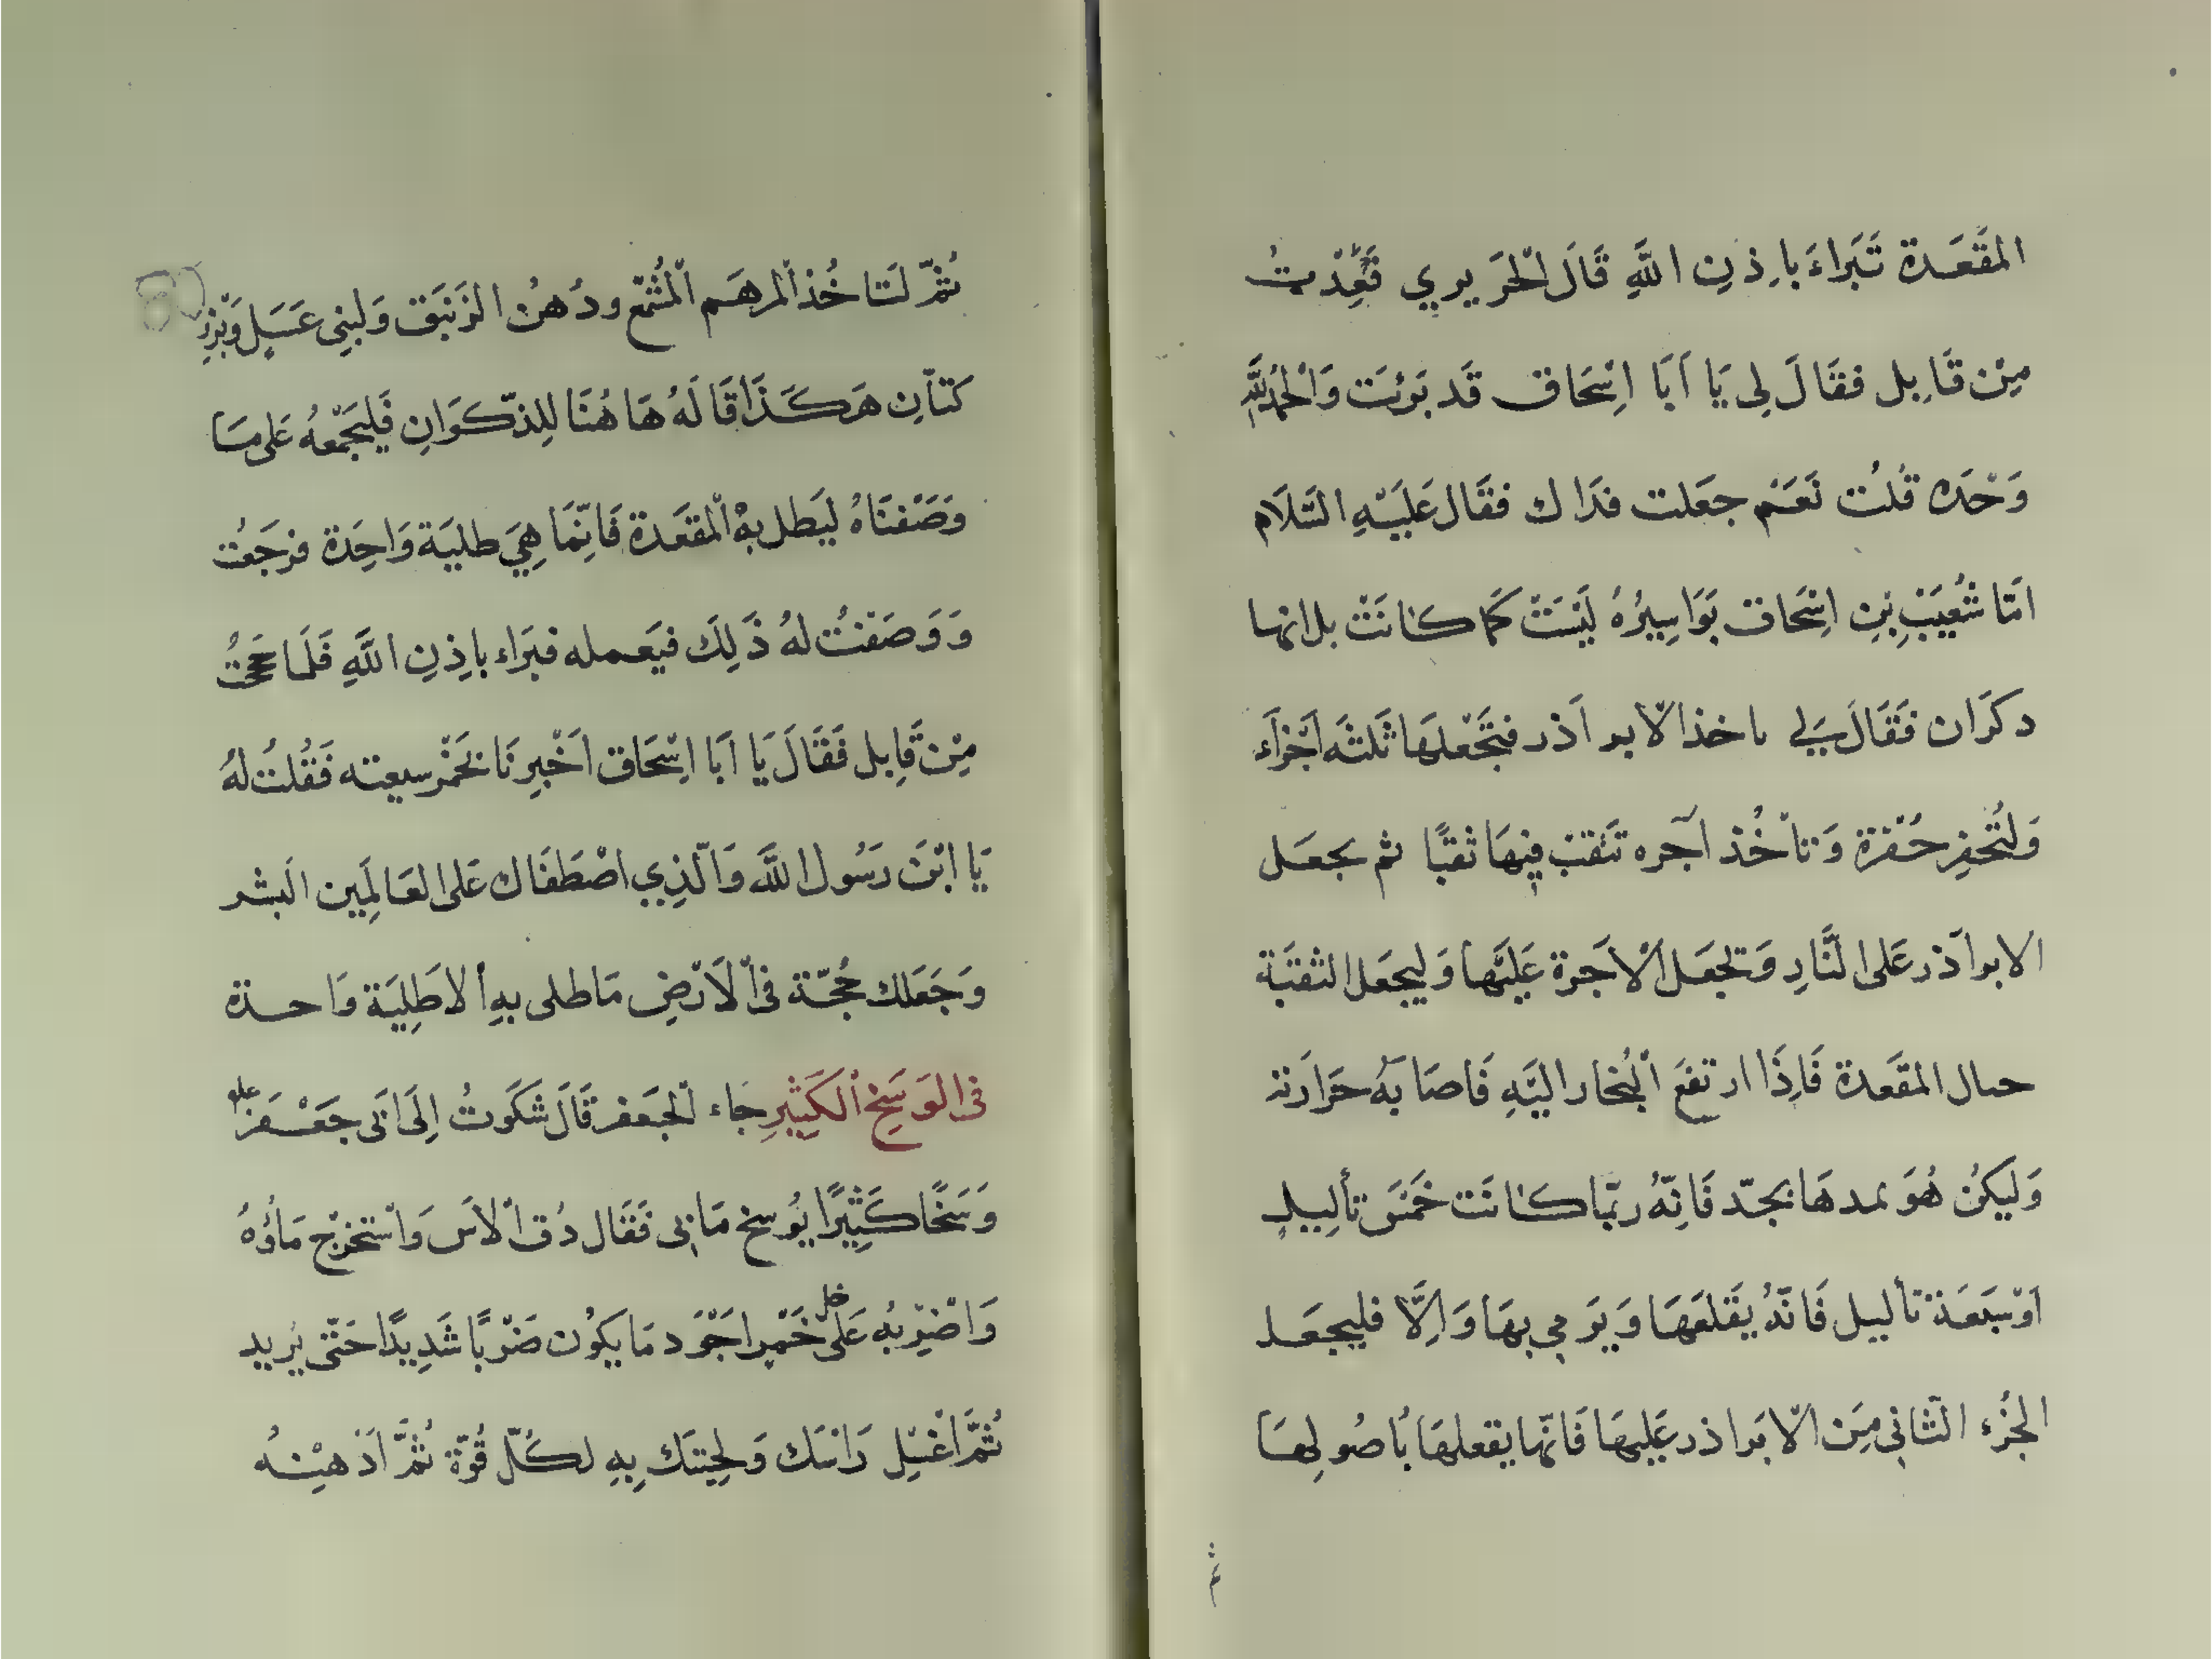 المَقْعَدة تَبَراءَ بِاذنِ اللهِ قَالَ الْحَريري فَعُدْتُ
مِنْ قَابِل فقَالَ لِى يَا اَبَا اِسْحَاق قَد بَرِئتَ وَالْحَمْدُ لِلّهِ
وَحْدَه قُلتُ نَعَمْ جعَلت فدَاك فقَال عَلَيْهِ السَّلَام
امّا شُعَيْبِ بْنِ اِسْحَاق بَوَاسِيرُهُ لَيْسَتْ كَمَا كانَتْ بل انها
ذكرَان فَقَالَ لِي ياخذ الابراَذر فتَجْعَلهَا ثَلثَه اَجْزَاَء
وَلتُحْفِر حُفْرَة وَتأخُذ آجره تَثقبْ فِيهَا ثقبًا ثم يجعَل
الابراَذر عَلى النَّارِ وَتجعَل الْاَجرة عَلَيْهَا وَليجعَل الثقْبَة
حيال المقعَدة فَاِذَا ارتفعَ الْبُخار اليَهِ فَاصَابَهُ حَرَارَته
وَليَكُنْ هُوَ يمدهَا بجدّ فَاِنّهُ ربّما كانَت خَمْسَ تأليل
اوْ سَبْعَة تأليل فَانّهُ يقَلعَهَا وَيَرمي بهَا وَاِلَّا فليجعَل
الجُزء الثّاني مِنَ الابَراذر عَليهَا فَانّها يقعلهَا بأصُولهَا
ثم
ثُمّ لتَاخُذ المرهَم الْمُشمّع ودُهنُ الزَنبَق وَلبنِى عَسَلٍ وَبَزرِ
كتّانِ هَكَذَا قَالَهُ هَا هُنَا لِلذّكَرَانِ فَليَجْمعهُ عَلى مَا
وَصَفنَاهُ ليَطلي بِهِ الْمقعَدة فَاِنّمَا هِيَ طليَة وَاحِدَة فرجَعْتُ
وَوَصَفتُ لهُ ذَلِكَ فيَعمله فبَراء باِذِنِ اللهِ فَلَمّا حَجَجْتُ
مِنْ قَابِل فَقَالَ يَا اَبَا اِسْحَاق اَخْبِرنَا بخَبْر سعيته فَقُلتُ لهُ
يَا ابْنَ رَسُول اللهِ وَالّذِي اصْطَفَاك عَلى العَالَمِين البشر
وَجَعَلك حُجّة فى الْاَرْضِ مَا طلى بهِ الاطَلِيَة وَاحدة
فى الوَسَخِ الْكَثِيْرِ جَاء الْجَعفر قَالَ شَكَوتُ اِلَى اَبى جَعْفَر عليه
وَسَخًا كَثِيْرًا يُوسِخ مَا بى فَقَال دُق الْاٰس وَاسْتخرِجْ مَاؤُهُ
وَاضْرِبْه عَلى خل خَمْرِ اجَوَد مَا يكَوُن ضَرْبًا شَدِيْدًا حَتّى يزيد
ثُمَّ اغْسِل رَاسَك وَلحيتَك بِهِ لكُلّ قُوّة ثُمَّ اَدْهِنْهُ